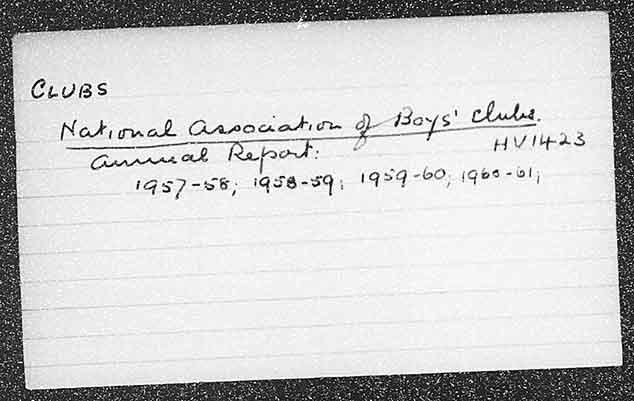 CLUBS
National Association of Boys' Clubs.
Annual Report: HV1423
1957-58; 1958-59; 1959-60; 1960-61;